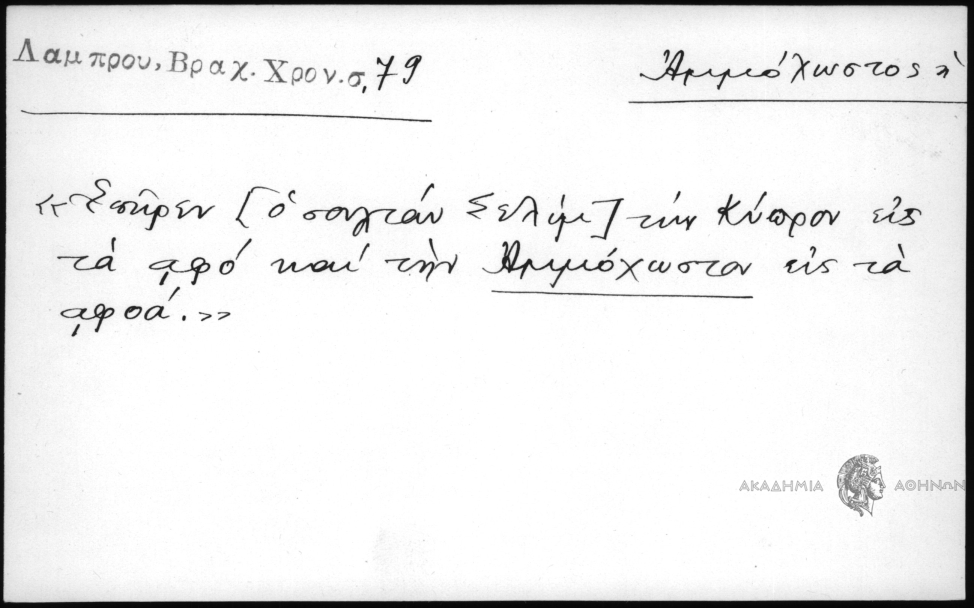 Λαμπρου, Βραχ. Χρον. σ, 79
Ἀμμόχωστος ἡ
«Ἐπῆρεν [ὁ σουλτάν Σελίμ] τὴν Κύπρον εἰς
τὰ ͵αφό καί τὴν Ἀμμόχωσταν εἰς τὰ
͵αφοά.»
ΑΚΑΔΗΜΙΑ ΑΘΗΝΩΝ